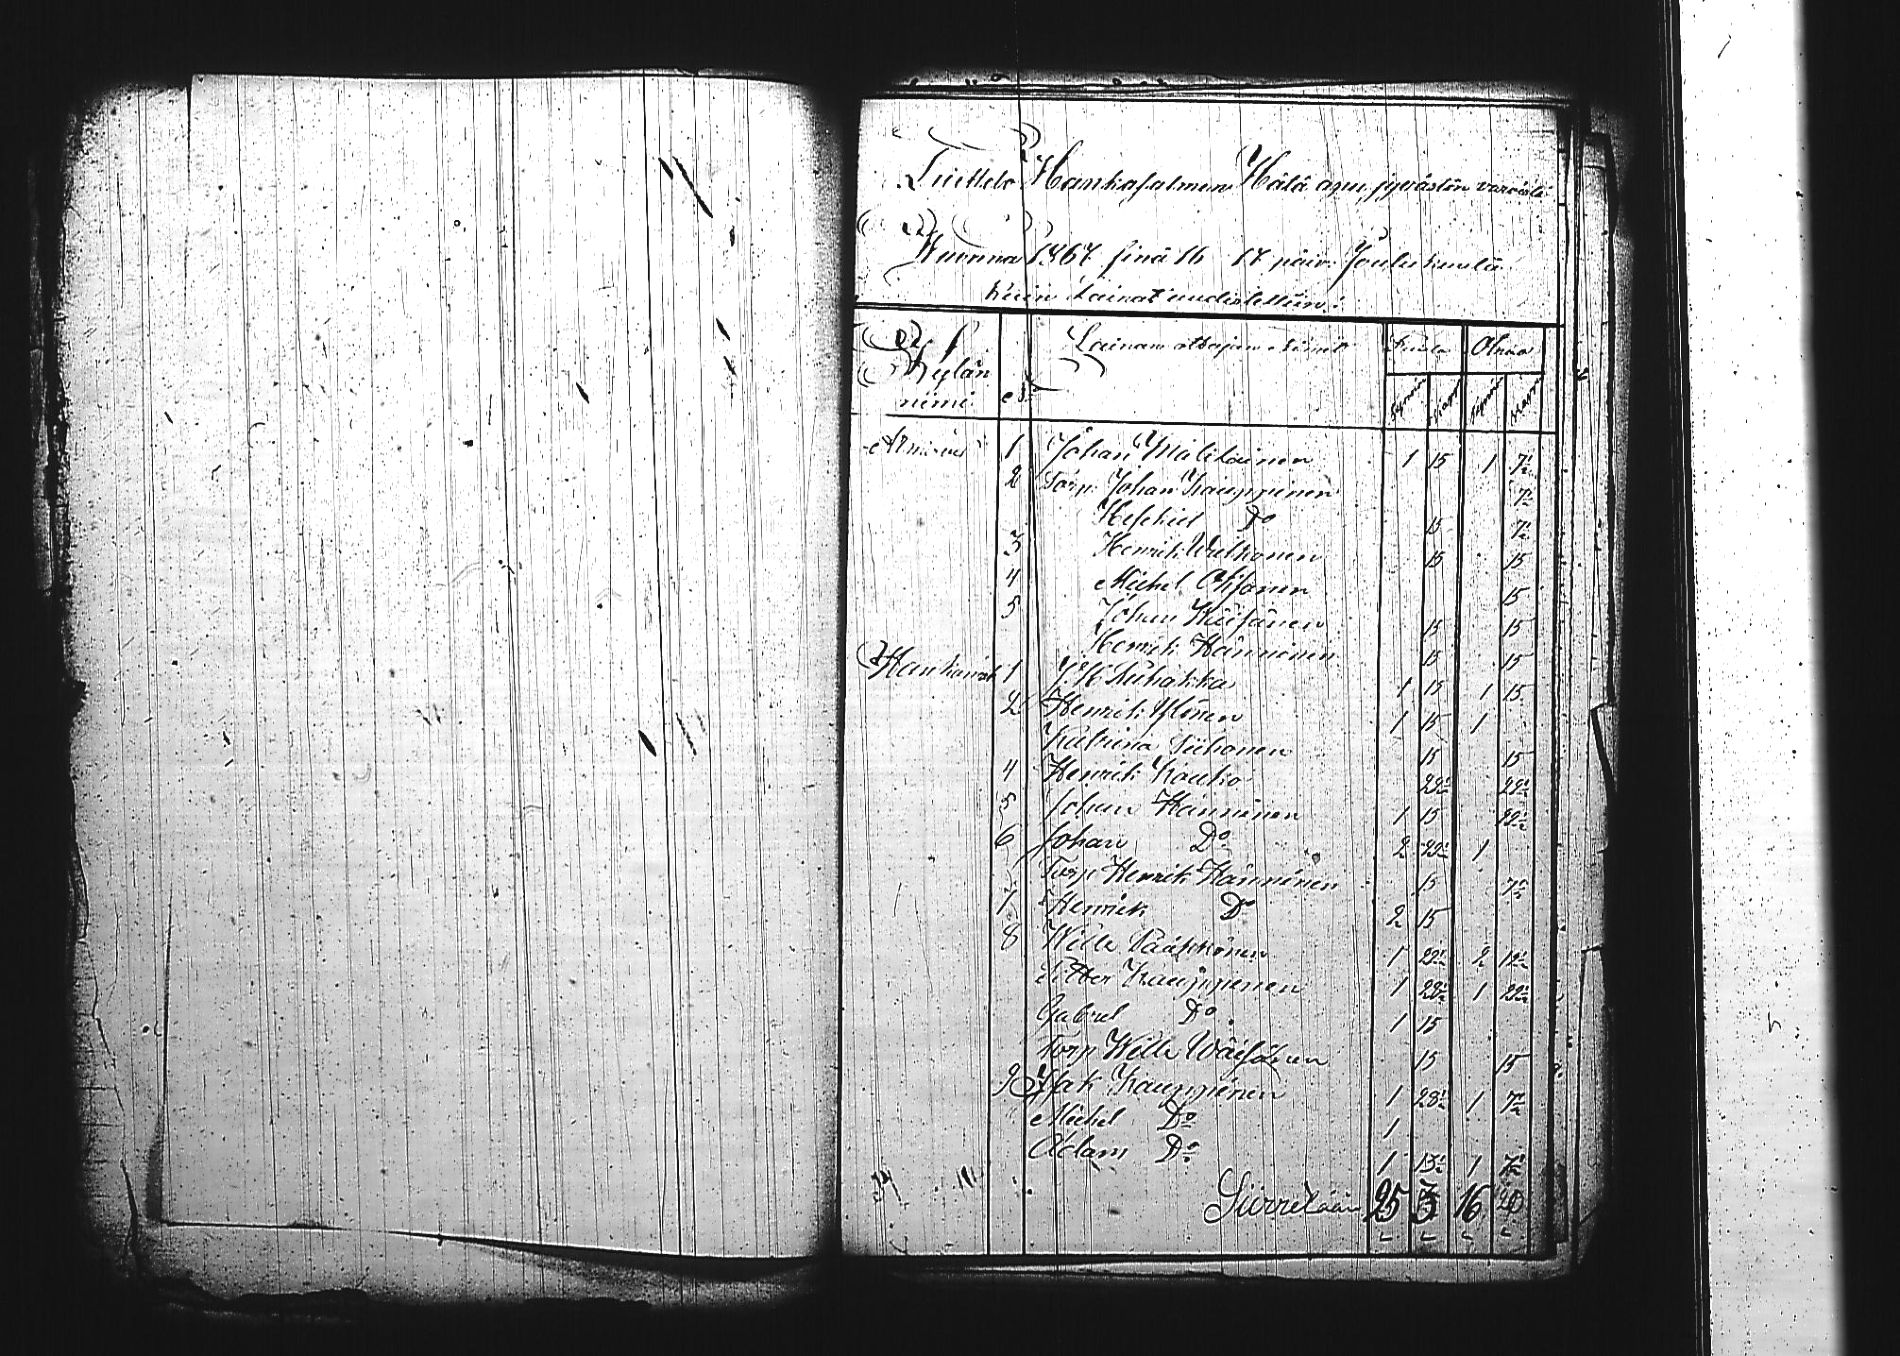 Luettelo Hankasalmen Hätä apu jyvästön varoista
Wuonna 1867 sinä 16 17 päiv. Joulukuuta
kuin Lainat uudistettiin.
Kylän nimi N:o Lainan ottajan nimet Ruista Ohraa
Tynnör Kappa Tynnör Kappa
Armisvesi 1 Johan Mälikäinen 1 15 1 7½
2 Torp. Johan Kauppinen 7½
Heskiel D:o 15 7½
3 Henrik Wulkonen 15 15
4 Michel Ohisonen 15
5 Johan Hiifänen 15 15
Henrik Hänninen 15 15
Hankaves 1 J. H. Kuhakka 1 15 1 15
2 Henrik Ylönen 1 15 1
Katrina Siikonen 15 15
4 Henrik Kauko 22½ 22½
5 Johan Hänninen 1 15 22½
6 Johan D:o 2 22½ 1
Torp Henrik Hänninen 15 7½
7 Henrik D:o 2 15
8 Wille Pääkkönen 1 22½ 2 12½
Petter Kauppinen 1 28½ 1 22½
Gabriel D:o 1 15
Torp Wille Wäisänen 15 15
9 Isak Kauppinen 1 28½ 1 7½
Michel D:o 1
Adam D:o 1 15½ 1 7½
Siirretään 25 3 16 20